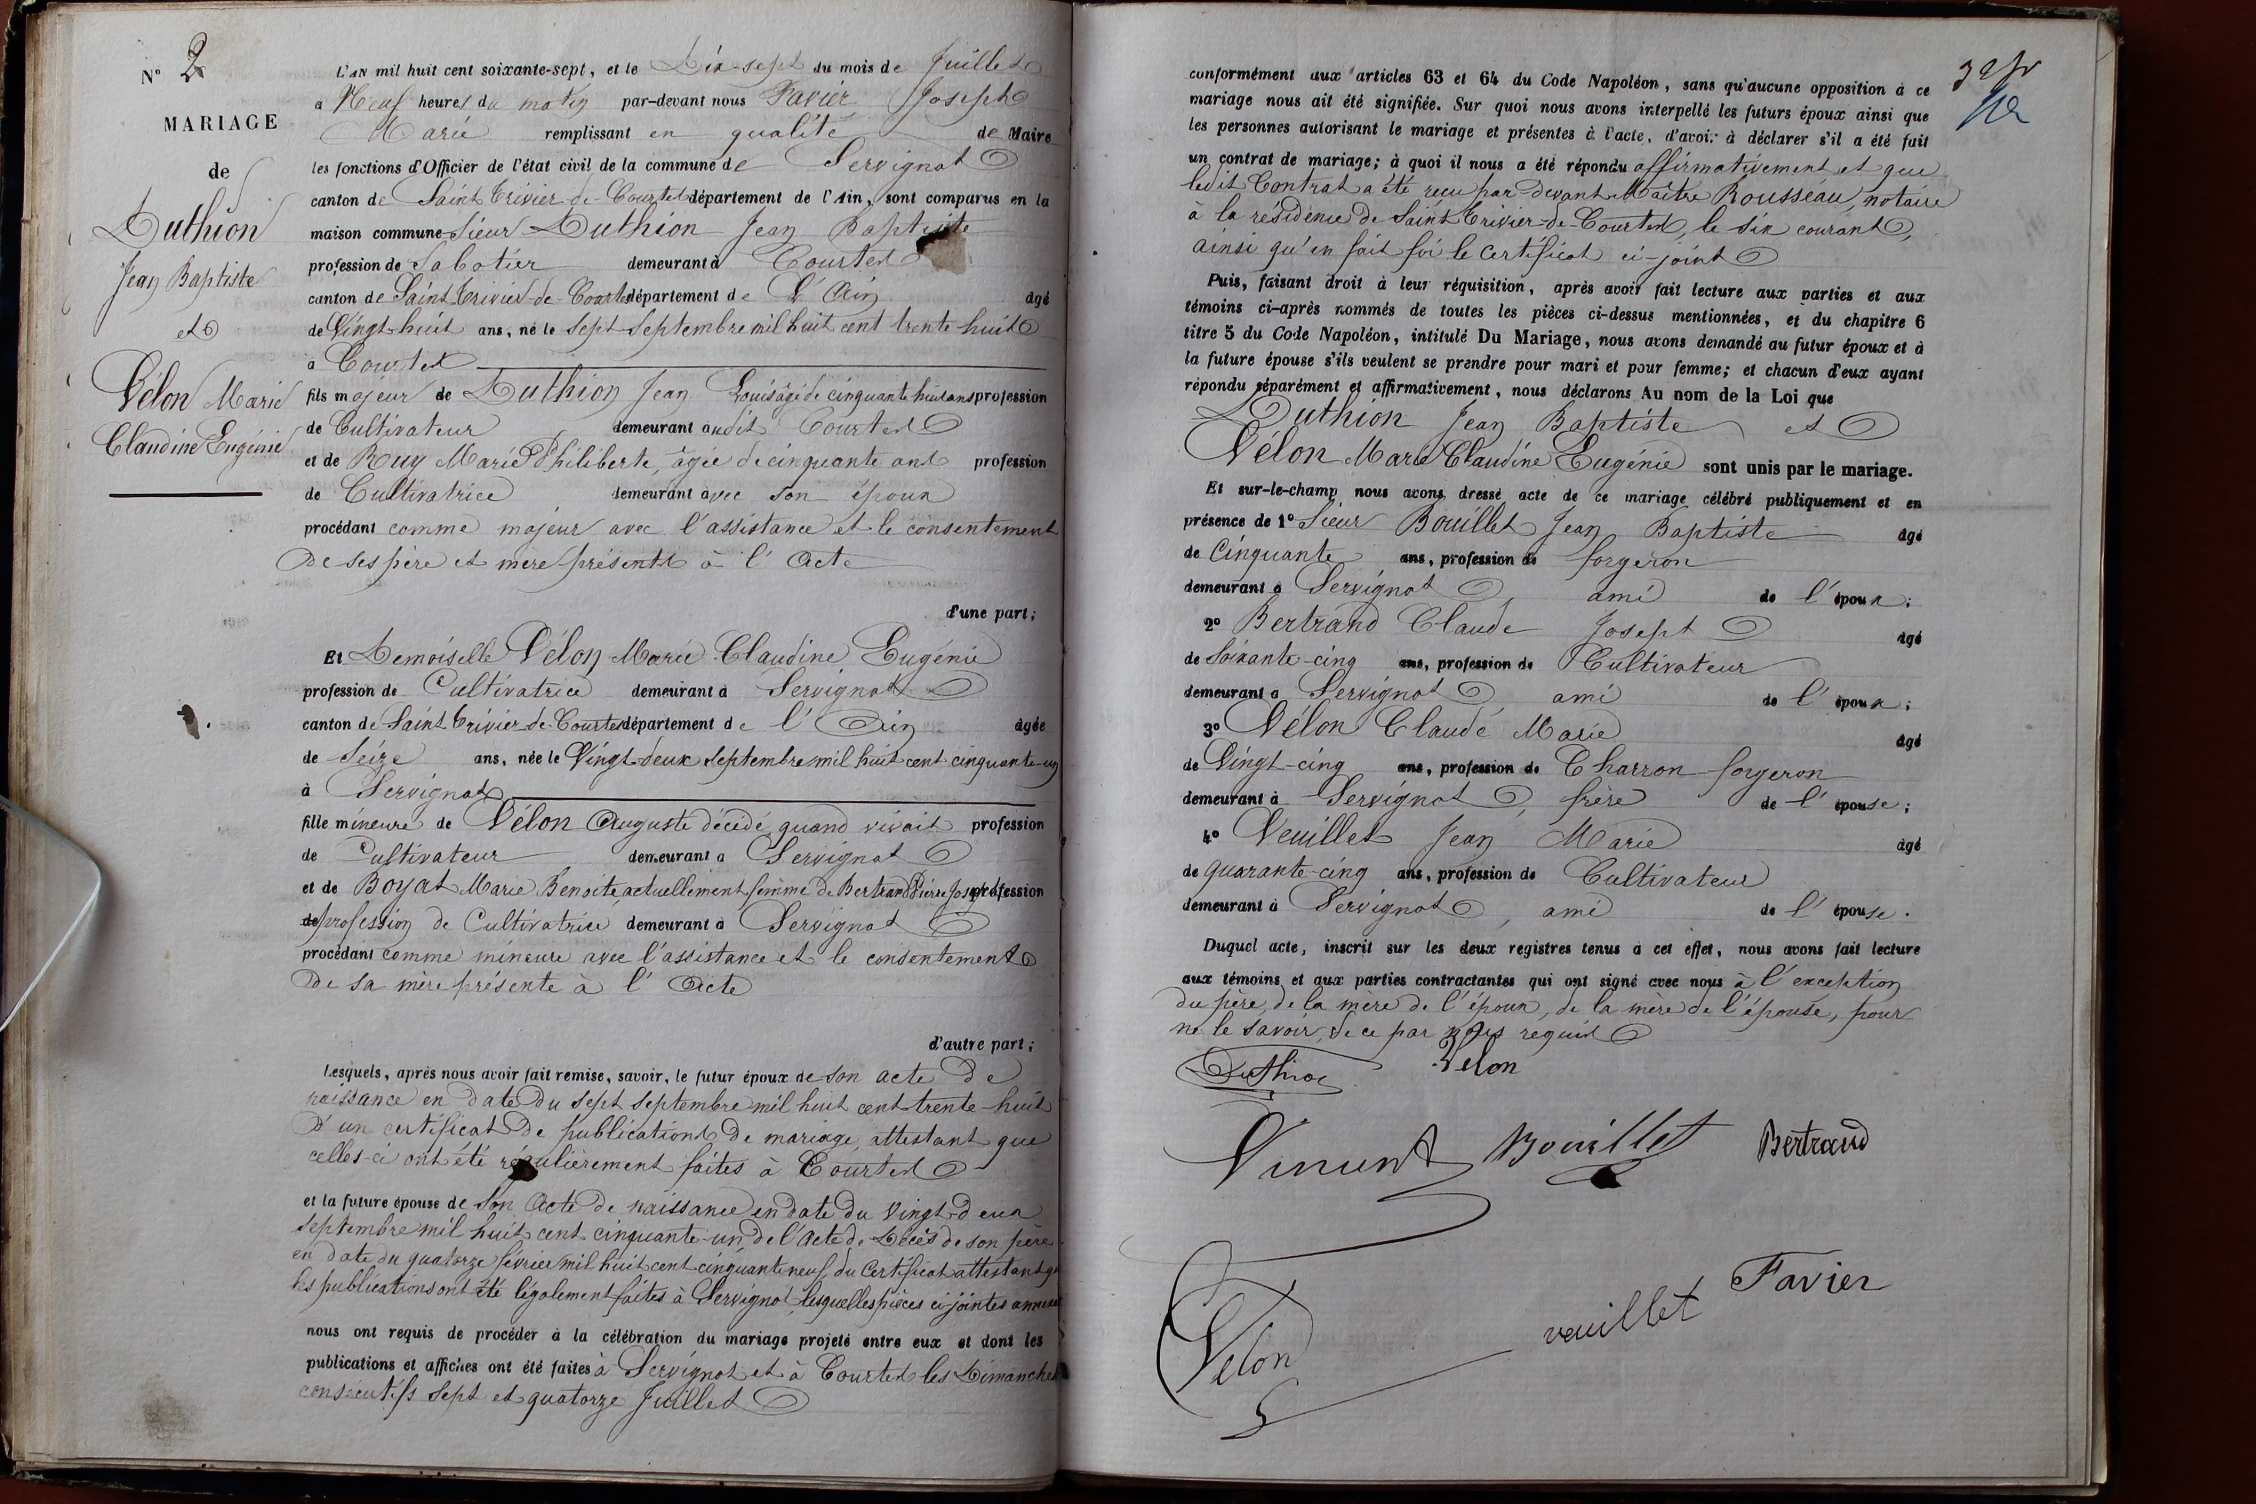 N° 2
MARIAGE
de
Duthion
Jean Baptiste
et
Vélon Marie
Claudine Eugénie
L'AN mil huit cent soixante-sept, et le Dix-sept du mois de Juillet
a Neuf heures du matin par-devant nous Favier Joseph
Marie remplissant en qualité de Maire
les fonctions d'Officier de l'état civil de la commune de Servignat
canton de Saint Trivier-de-Courtes département de l'Ain, sont comparus en la
maison commune Sieur Duthion Jean Baptiste
profession de Sabotier demeurant à Courtes
canton de Saint Trivier-de-Courtes département de L'Ain âgé
de Vingt-huit ans, né le Sept Septembre mil huit cent trente huit
à Courtes
fils majeur de Duthion Jean Louis âgé de cinquante huit ans profession
de Cultivateur demeurant audit Courtes
et de Ruy Marie Philiberte, âgée de cinquante ans profession
de Cultivatrice demeurant avec son époux
procédant comme majeur avec l'assistance et le consentement
de ses père et mère présents à l'Acte
d'une part;
Et Demoiselle Vélon Marie Claudine Eugénie
profession de Cultivatrice demeurant à Servignat
canton de Saint Trivier-de-Courtes département de l'Ain âgée
de Seize ans, née le Vingt-deux Septembre mil huit cent cinquante-un
à Servignat
fille mineure de Vélon Auguste décédé, quand vivait profession
de Cultivateur demeurant a Servignat
et de Boyat Marie Benoite, actuellement femme de Bertrand Pierre Joseph profession
de profession de Cultivatrice demeurant à Servignat
procédant comme mineure avec l'assistance et le consentement
de sa mère présente à l'Acte
d'autre part;
Lesquels, après nous avoir fait remise, savoir, le futur époux de son acte de
naissance en date du sept septembre mil huit cent trente-huit
d'un certificat de publications de mariage, attestant que
celles-ci ont été régulièrement faites à Courtes
et la future épouse de son Acte de naissance en date du vingt-deux
septembre mil huit cent cinquante-un, de l'acte de Décès de son père
en date du quatorze février mil huit cent cinquante neuf, du Certificat attestant que
les publications ont été légalement faites à Servignat, lesquelles pièces ci-jointes annexées
nous ont requis de procéder à la célébration du mariage projeté entre eux et dont les
publications et affiches ont été faites à Servignat et à Courtes les Dimanches
consécutifs sept et quatorze Juillet
conformément aux articles 63 et 64 du Code Napoléon, sans qu'aucune opposition à ce
mariage nous ait été signifiée. Sur quoi nous avons interpellé les futurs époux ainsi que
les personnes autorisant le mariage et présentes à l'acte, d'avoir à déclarer s'il a été fait
un contrat de mariage; à quoi il nous a été répondu affirmativement et que
ledit Contrat a été reçu par devant Maître Rousseau, notaire
à la résidence de Saint Trivier-de-Courtes, le six courant,
ainsi qu'en fait foi le certificat ci-joint
Puis, faisant droit à leur réquisition, après avoir fait lecture aux parties et aux
témoins ci-après nommés de toutes les pièces ci-dessus mentionnées, et du chapitre 6
titre 5 du Code Napoléon, intitulé Du Mariage, nous avons demandé au futur époux et à
la future épouse s'ils veulent se prendre pour mari et pour femme; et chacun d'eux ayant
répondu séparément et affirmativement, nous déclarons Au nom de la Loi que
Duthion Jean Baptiste et
Vélon Marie Claudine Eugénie sont unis par le mariage.
Et sur-le-champ nous avons dressé acte de ce mariage célébré publiquement et en
présence de 1° Sieur Bouillet Jean Baptiste âgé
de Cinquante ans, profession de forgeron
demeurant à Servignat, ami de l'époux;
2° Bertrand Claude Joseph âgé
de Soixante-cinq ans, profession de Cultivateur
demeurant a Servignat ami de l'époux;
3° Vélon Claude Marie âgé
de Vingt-cinq ans, profession de Charron-forgeron
demeurant à Servignat, frère de l'épouse;
4° Veuillet Jean Marie âgé
de quarante-cinq ans, profession de Cultivateur
demeurant à Servignat, ami de l'épouse.
Duquel acte, inscrit sur les deux registres tenus à cet effet, nous avons fait lecture
aux témoins et aux parties contractantes qui ont signé avec nous à l'exception
du père, de la mère de l'époux, de la mère de l'épouse, pour
ne le savoir, de ce par nous requis
Duthion Velon
Vinunt Bouillet Bertrand
Favier
Velon veuillet